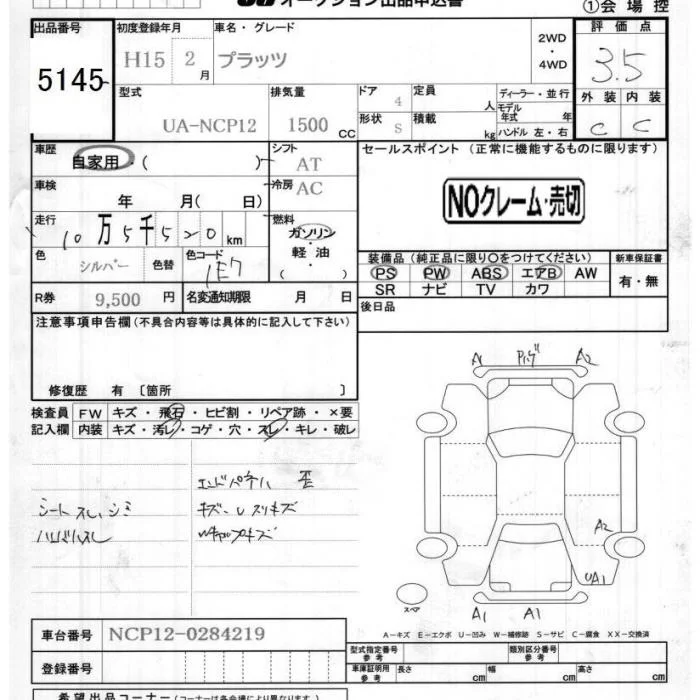 オークション出品申込書
①会場控
出品番号 初度登録年月 車名・グレード 評価点
5145 H15 2月 プラッツ 2WD・4WD 3.5
型式 排気量 ドア 定員 ディーラー・並行 外装 内装
UA-NCP12 1500 CC 4 人 モデル年式 年 C C
形状 S 積載 kg ハンドル 左・右
車歴 シフト セールスポイント (正常に機能するものに限ります)
自家用・( ) AT
車検 冷房 NOクレーム・売切
年 月( 日) AC
走行 燃料
10万5千520km ガソリン・軽油・( )
色 色替 色コード 装備品 (純正品に限り○をつけてください) 新車保証書
シルバー 1E7 PS PW ABS エアB AW 有・無
R券 9,500円 名変通知期限 月 日 SR ナビ TV カワ
後日品
注意事項申告欄(不具合内容等は具体的に記入して下さい)
修復歴 有 〔箇所 〕
検査員 FW キズ・飛石・ヒビ割・リペア跡・×要
記入欄 内装 キズ・汚レ・コゲ・穴・スレ・キレ・破レ
A1 A2
エンドパネル 歪
シートスレ、シミ キズ・Uスリキズ
A2
UA1
スペア
A1 A1
A−キズ E−エクボ U−凹み W−補修跡 S−サビ C−腐食 XX−交換済
車台番号 NCP12-0284219
型式指定番号 参考 類別区分番号 参考
登録番号 車庫証明用 参考 長さ cm 幅 cm 高さ cm
希望出品コーナー(コーナーは各会場により異なります)